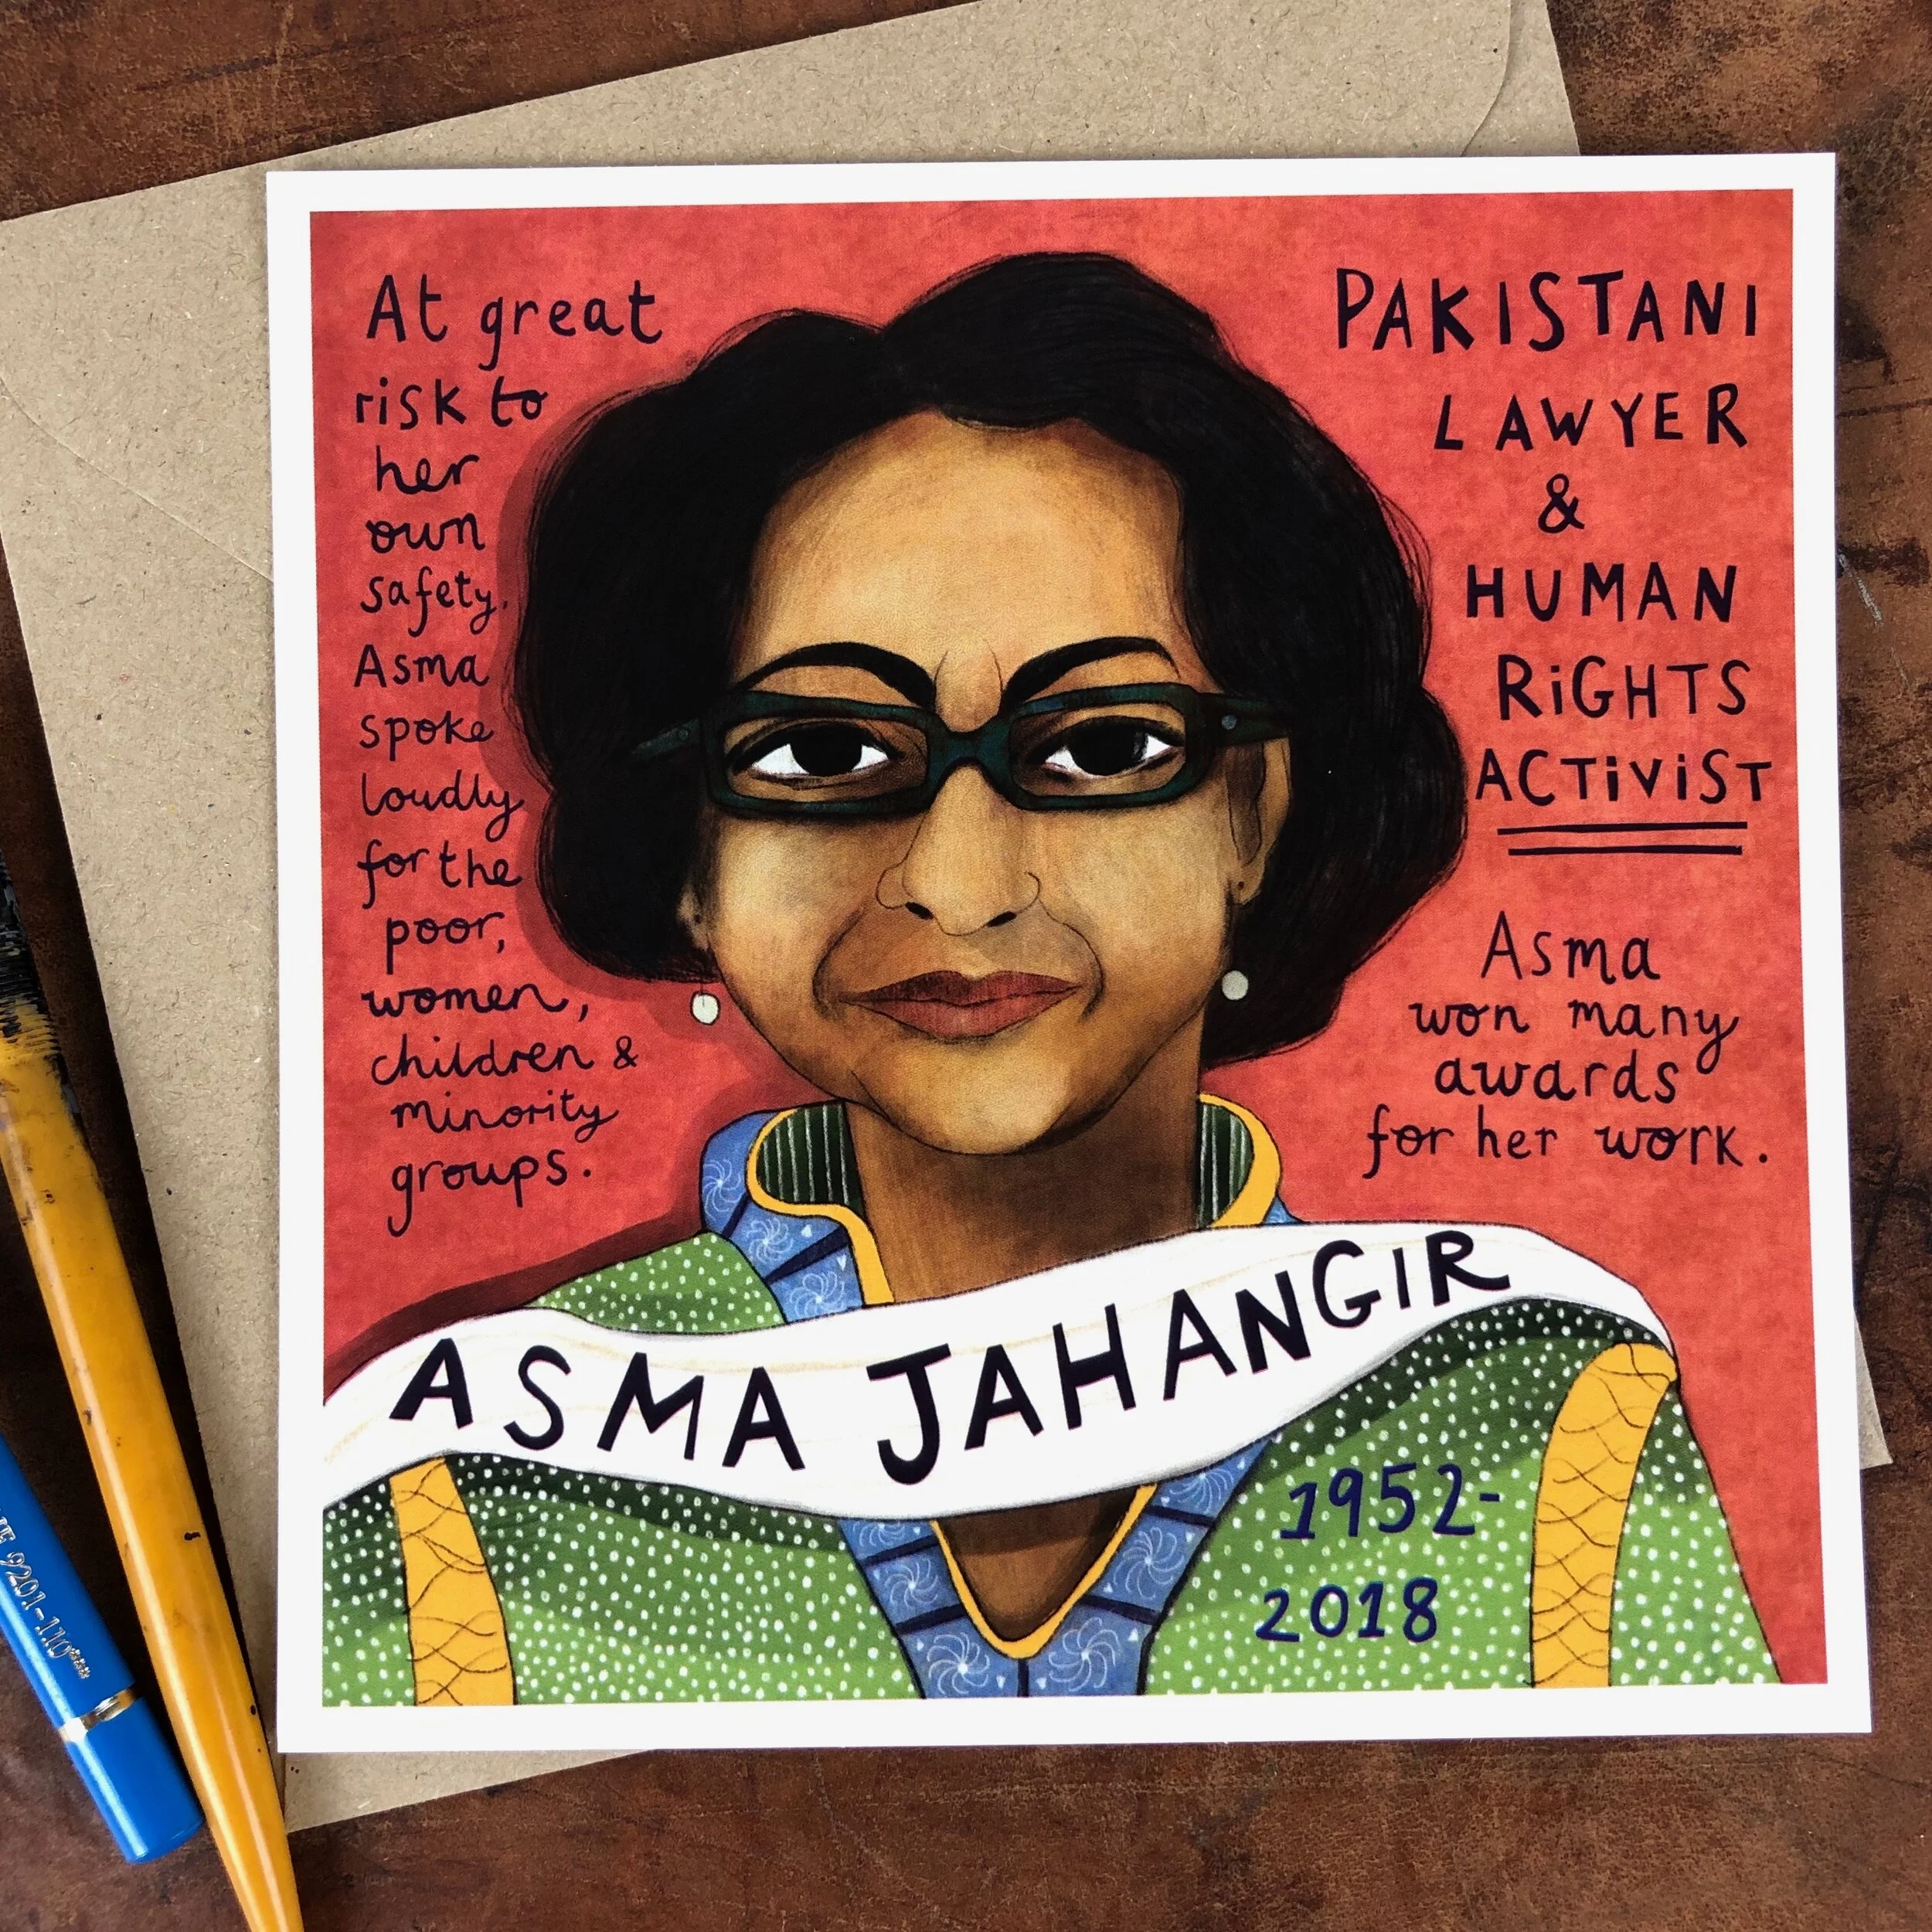 At great
risk to
her
own
safety,
Asma
spoke
loudly
for the
poor,
women,
children &
minority
groups.
PAKISTANI
LAWYER
&
HUMAN
RiGHTS
ACTiViST
Asma
won many
awards
for her work.
ASMA JAHANGIR
1952-
2018
9201-110